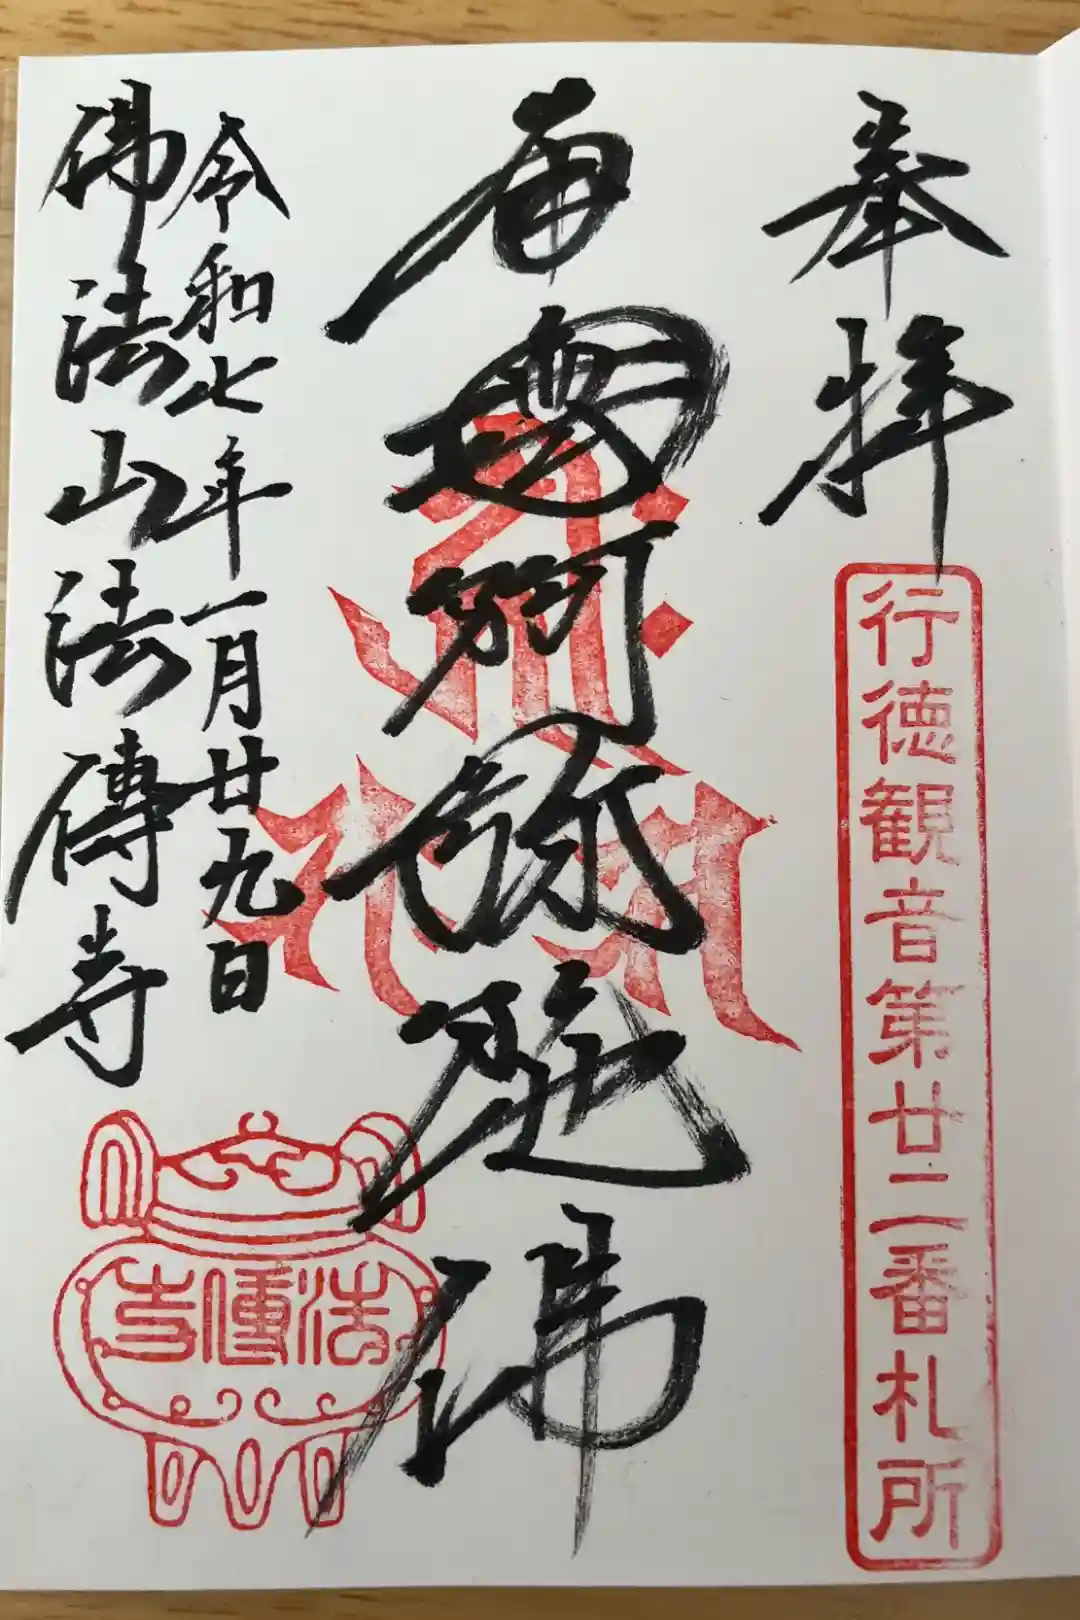 奉拝
行徳観音第廿二番札所
南無阿弥陀佛
令和七年一月廿九日
佛法山法傳寺
法傳寺